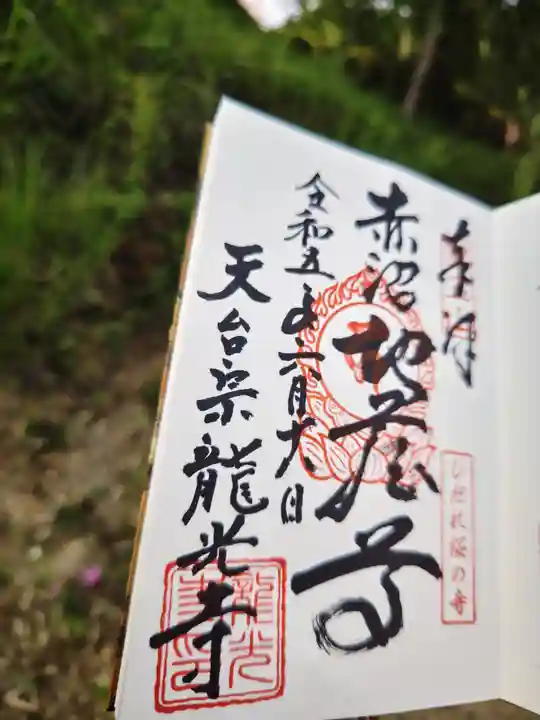 奉拝
しだれ桜の寺
赤沼地蔵尊
令和五年六月十八日
天台宗龍光寺